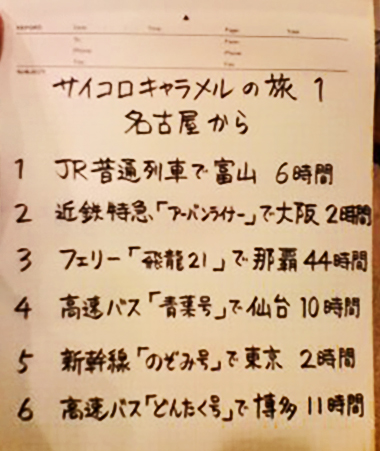 REPORT
Date:
Time:
Page:
Total:
To:
From:
Phone:
Phone:
Fax:
Fax:
SUBJECT
サイコロキャラメルの旅 1
名古屋から
1 JR普通列車で富山 6時間
2 近鉄特急、「アーバンライナー」で大阪 2時間
3 フェリー「飛龍21」で那覇 44時間
4 高速バス「青葉号」で仙台 10時間
5 新幹線「のぞみ号」で東京 2時間
6 高速バス「どんたく号」で博多 11時間